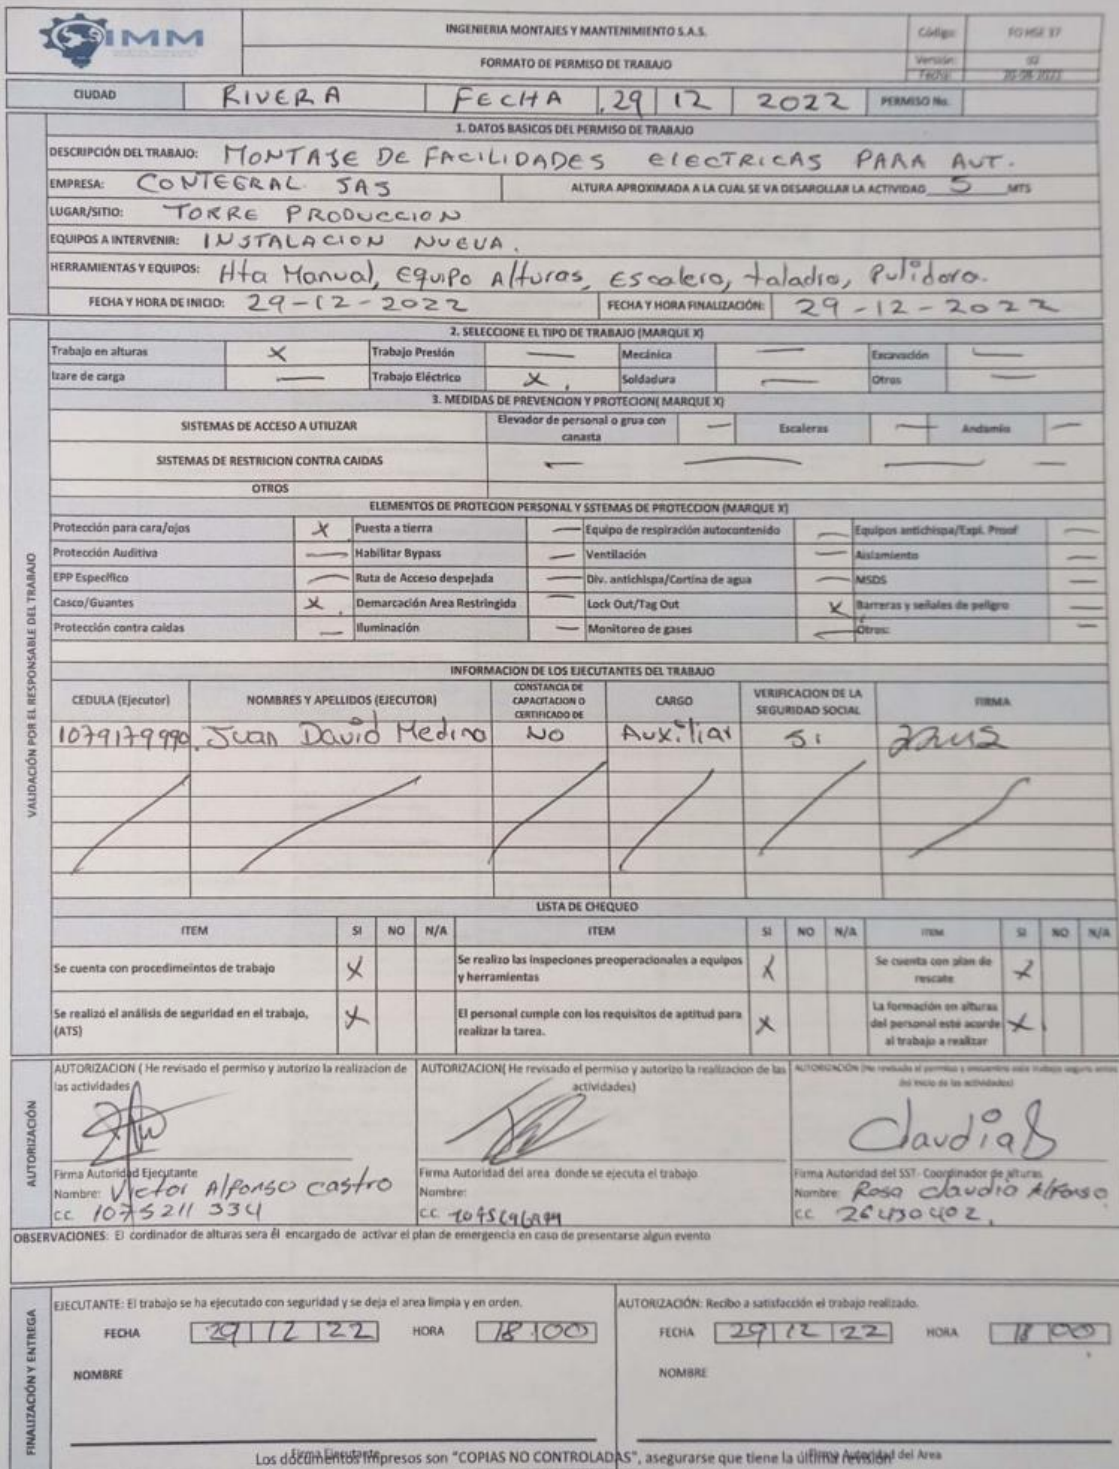 SIMM
INGENIERIA MONTAJES Y MANTENIMIENTO S.A.S.
Código: FO HSE 37
FORMATO DE PERMISO DE TRABAJO
Versión: 02
Fecha: 20-08-2022
CIUDAD RIVERA FECHA 29 12 2022 PERMISO No.
1. DATOS BASICOS DEL PERMISO DE TRABAJO
DESCRIPCIÓN DEL TRABAJO: MONTAJE DE FACILIDADES ELECTRICAS PARA AUT.
EMPRESA: CONTEGRAL SAS ALTURA APROXIMADA A LA CUAL SE VA DESAROLLAR LA ACTIVIDAD 5 MTS
LUGAR/SITIO: TORRE PRODUCCION
EQUIPOS A INTERVENIR: INSTALACION NUEVA.
HERRAMIENTAS Y EQUIPOS: Hta Manual, Equipo Alturas, Escalera, taladro, Pulidora.
FECHA Y HORA DE INICIO: 29-12-2022 FECHA Y HORA FINALIZACIÓN: 29-12-2022
2. SELECCIONE EL TIPO DE TRABAJO (MARQUE X)
Trabajo en alturas X Trabajo Presión — Mecánica — Excavación —
Izare de carga — Trabajo Eléctrico X. Soldadura — Otros —
3. MEDIDAS DE PREVENCION Y PROTECION( MARQUE X)
SISTEMAS DE ACCESO A UTILIZAR Elevador de personal o grua con canasta — Escaleras — Andamio —
SISTEMAS DE RESTRICION CONTRA CAIDAS — — — —
OTROS
ELEMENTOS DE PROTECION PERSONAL Y SSTEMAS DE PROTECCION (MARQUE X)
Protección para cara/ojos X Puesta a tierra — Equipo de respiración autocontenido — Equipos antichispa/Expl. Proof —
Protección Auditiva — Habilitar Bypass — Ventilación — Aislamiento —
EPP Especifico — Ruta de Acceso despejada — Div. antichispa/Cortina de agua — MSDS —
Casco/Guantes X. Demarcación Area Restringida — Lock Out/Tag Out X Barreras y señales de peligro —
Protección contra caidas — Iluminación — Monitoreo de gases — Otros: —
INFORMACION DE LOS EJECUTANTES DEL TRABAJO
CEDULA (Ejecutor) NOMBRES Y APELLIDOS (EJECUTOR) CONSTANCIA DE CAPACITACION O CERTIFICADO DE CARGO VERIFICACION DE LA SEGURIDAD SOCIAL FIRMA
1079179990. Juan David Medina NO Auxiliar Si
LISTA DE CHEQUEO
ITEM SI NO N/A ITEM SI NO N/A ITEM SI NO N/A
Se cuenta con procedimeintos de trabajo X Se realizo las inspeciones preoperacionales a equipos y herramientas X Se cuenta con plan de rescate X
Se realizó el análisis de seguridad en el trabajo, (ATS) X El personal cumple con los requisitos de aptitud para realizar la tarea. X La formación en alturas del personal esté acorde al trabajo a realizar X
AUTORIZACION ( He revisado el permiso y autorizo la realizacion de las actividades
AUTORIZACION( He revisado el permiso y autorizo la realizacion de las actividades)
AUTORIZACIÓN (He revisado el permiso y encuentro este trabajo seguro antes del inicio de las actividades)
Claudia
Firma Autoridad Ejecutante
Nombre: Victor Alfonso Castro
cc 1075211334
Firma Autoridad del area donde se ejecuta el trabajo
Nombre:
cc
Firma Autoridad del SST- Coordinador de alturas
Nombre: Rosa Claudia Alfonso
cc 26430402.
OBSERVACIONES: El cordinador de alturas sera él encargado de activar el plan de emergencia en caso de presentarse algun evento
EJECUTANTE: El trabajo se ha ejecutado con seguridad y se deja el area limpia y en orden.
FECHA 29 12 22 HORA 18 00
NOMBRE
Firma Ejecutante
AUTORIZACIÓN: Recibo a satisfacción el trabajo realizado.
FECHA 29 12 22 HORA 18 00
NOMBRE
Firma Autoridad del Area
Los documentos impresos son "COPIAS NO CONTROLADAS", asegurarse que tiene la última revisión
VALIDACIÓN POR EL RESPONSABLE DEL TRABAJO
AUTORIZACIÓN
FINALIZACIÓN Y ENTREGA